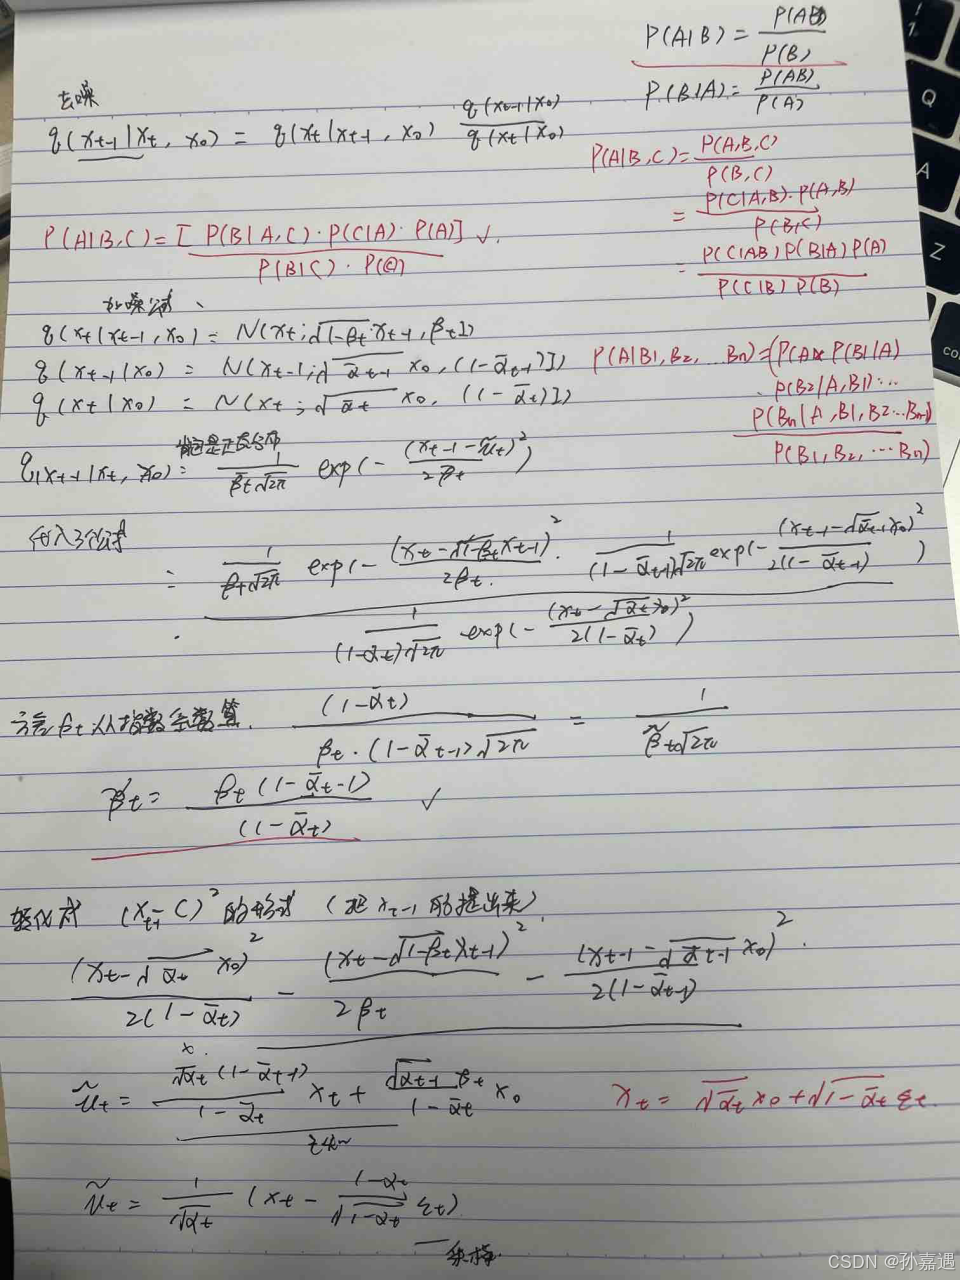 P(A|B) = P(AB) / P(B)
P(B|A) = P(AB) / P(A)
去噪
q(xt-1|xt, x0) = q(xt|xt-1, x0) q(xt-1|x0) / q(xt|x0)
P(A|B,C) = P(A,B,C) / P(B,C)
= P(C|A,B)·P(A,B) / P(B,C)
= P(C|AB) P(B|A) P(A) / P(C|B) P(B)
P(A|B,C) = [P(B|A,C)·P(C|A)·P(A)] / P(B|C)·P(C) ✓.
加噪公式、
q(xt|xt-1, x0) = N(xt; √(1-βt) xt-1, βtI)
q(xt-1|x0) = N(xt-1; √ᾱt-1 x0, (1-ᾱt-1)I)
q(xt|x0) = N(xt; √ᾱt x0, (1-ᾱt)I)
P(A|B1, B2, ... Bn) = (P(A)× P(B1|A)
· P(B2|A, B1)···
P(Bn|A, B1, B2...Bn-1) / P(B1, B2, ... Bn)
肯定是正态分布
q(xt-1|xt, x0) = 1 / β̃t√2π exp(- (xt-1 - ũt)² / 2β̃t)
代入3个公式
= 1 / βt√2π exp(- (xt-√(1-βt) xt-1)² / 2βt · 1 / (1-ᾱt-1)√2π exp(- (xt-1-√ᾱt-1 x0)² / 2(1-ᾱt-1))
1 / (1-ᾱt)√2π exp(- (xt-√ᾱt x0)² / 2(1-ᾱt))
方差βt从指数系数算. (1-ᾱt) / βt·(1-ᾱt-1)√2π = 1 / β̃t√2π
β̃t = βt(1-ᾱt-1) / (1-ᾱt) ✓
转化成 (xt-1 - C)² 的形式 (把xt-1的提出来)
(xt-√ᾱt x0)² / 2(1-ᾱt) - (xt-√(1-βt) xt-1)² / 2βt - (xt-1-√ᾱt-1 x0)² / 2(1-ᾱt-1) .
ũt = √αt (1-ᾱt-1) / 1-ᾱt xt + √ᾱt-1 βt / 1-ᾱt x0
xt = √ᾱt x0 + √(1-ᾱt) εt.
ũt = 1 / √αt (xt - 1-αt / √(1-ᾱt) εt)
CSDN @孙嘉遇